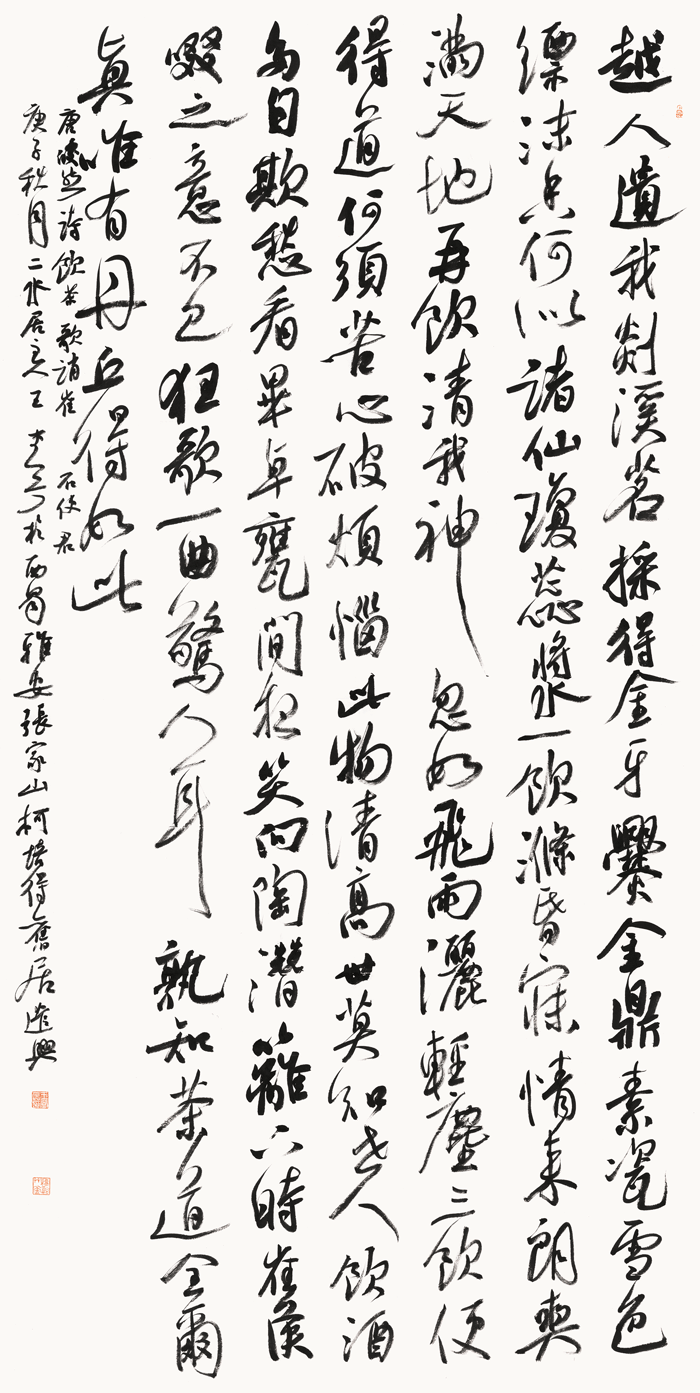 越人遺我剡溪茗採得金牙爨金鼎素瓷雪色
縹沫香何似諸仙瓊蕊漿一飲滌昏寐情來朗爽
滿天地再飲清我神忽如飛雨灑輕塵三飲便
得道何須苦心破煩惱此物清高世莫知世人飲酒
多自欺愁看畢卓甕間夜笑向陶潛籬下時崔侯
啜之意不已狂歌一曲驚人耳孰知茶道全爾
真唯有丹丘得如此
唐皎然詩飲茶歌誚崔石使君
庚子秋月二水居主人王於西蜀雅安張家山柯培得舊居遣興